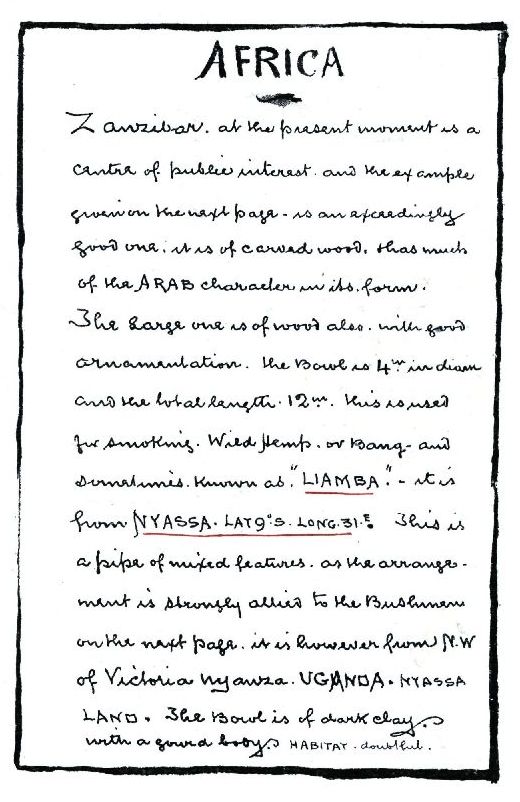 AFRICA
Zanzibar. at the present moment is a
centre of public interest. and the example
given on the next page - is an exceedingly
good one. it is of carved wood. & has much
of the ARAB character in its form.
The large one is of wood also. with good
ornamentation. the Bowl is 4in in diam
and the total length. 12in. this is used
for smoking. Wild Hemp. or Bang - and
sometimes. Known as. "LIAMBA." - it is
from NYASSA. LAT 9°S. LONG. 31.E. This is
a pipe of mixed features. as the arrange-
ment is strongly allied to the Bushmen
on the next page. it is however from N.W
of Victoria Nyanza. UGANDA. NYASSA
LAND. The Bowl is of dark clay.
with a gourd body. HABITAT. doubtful.